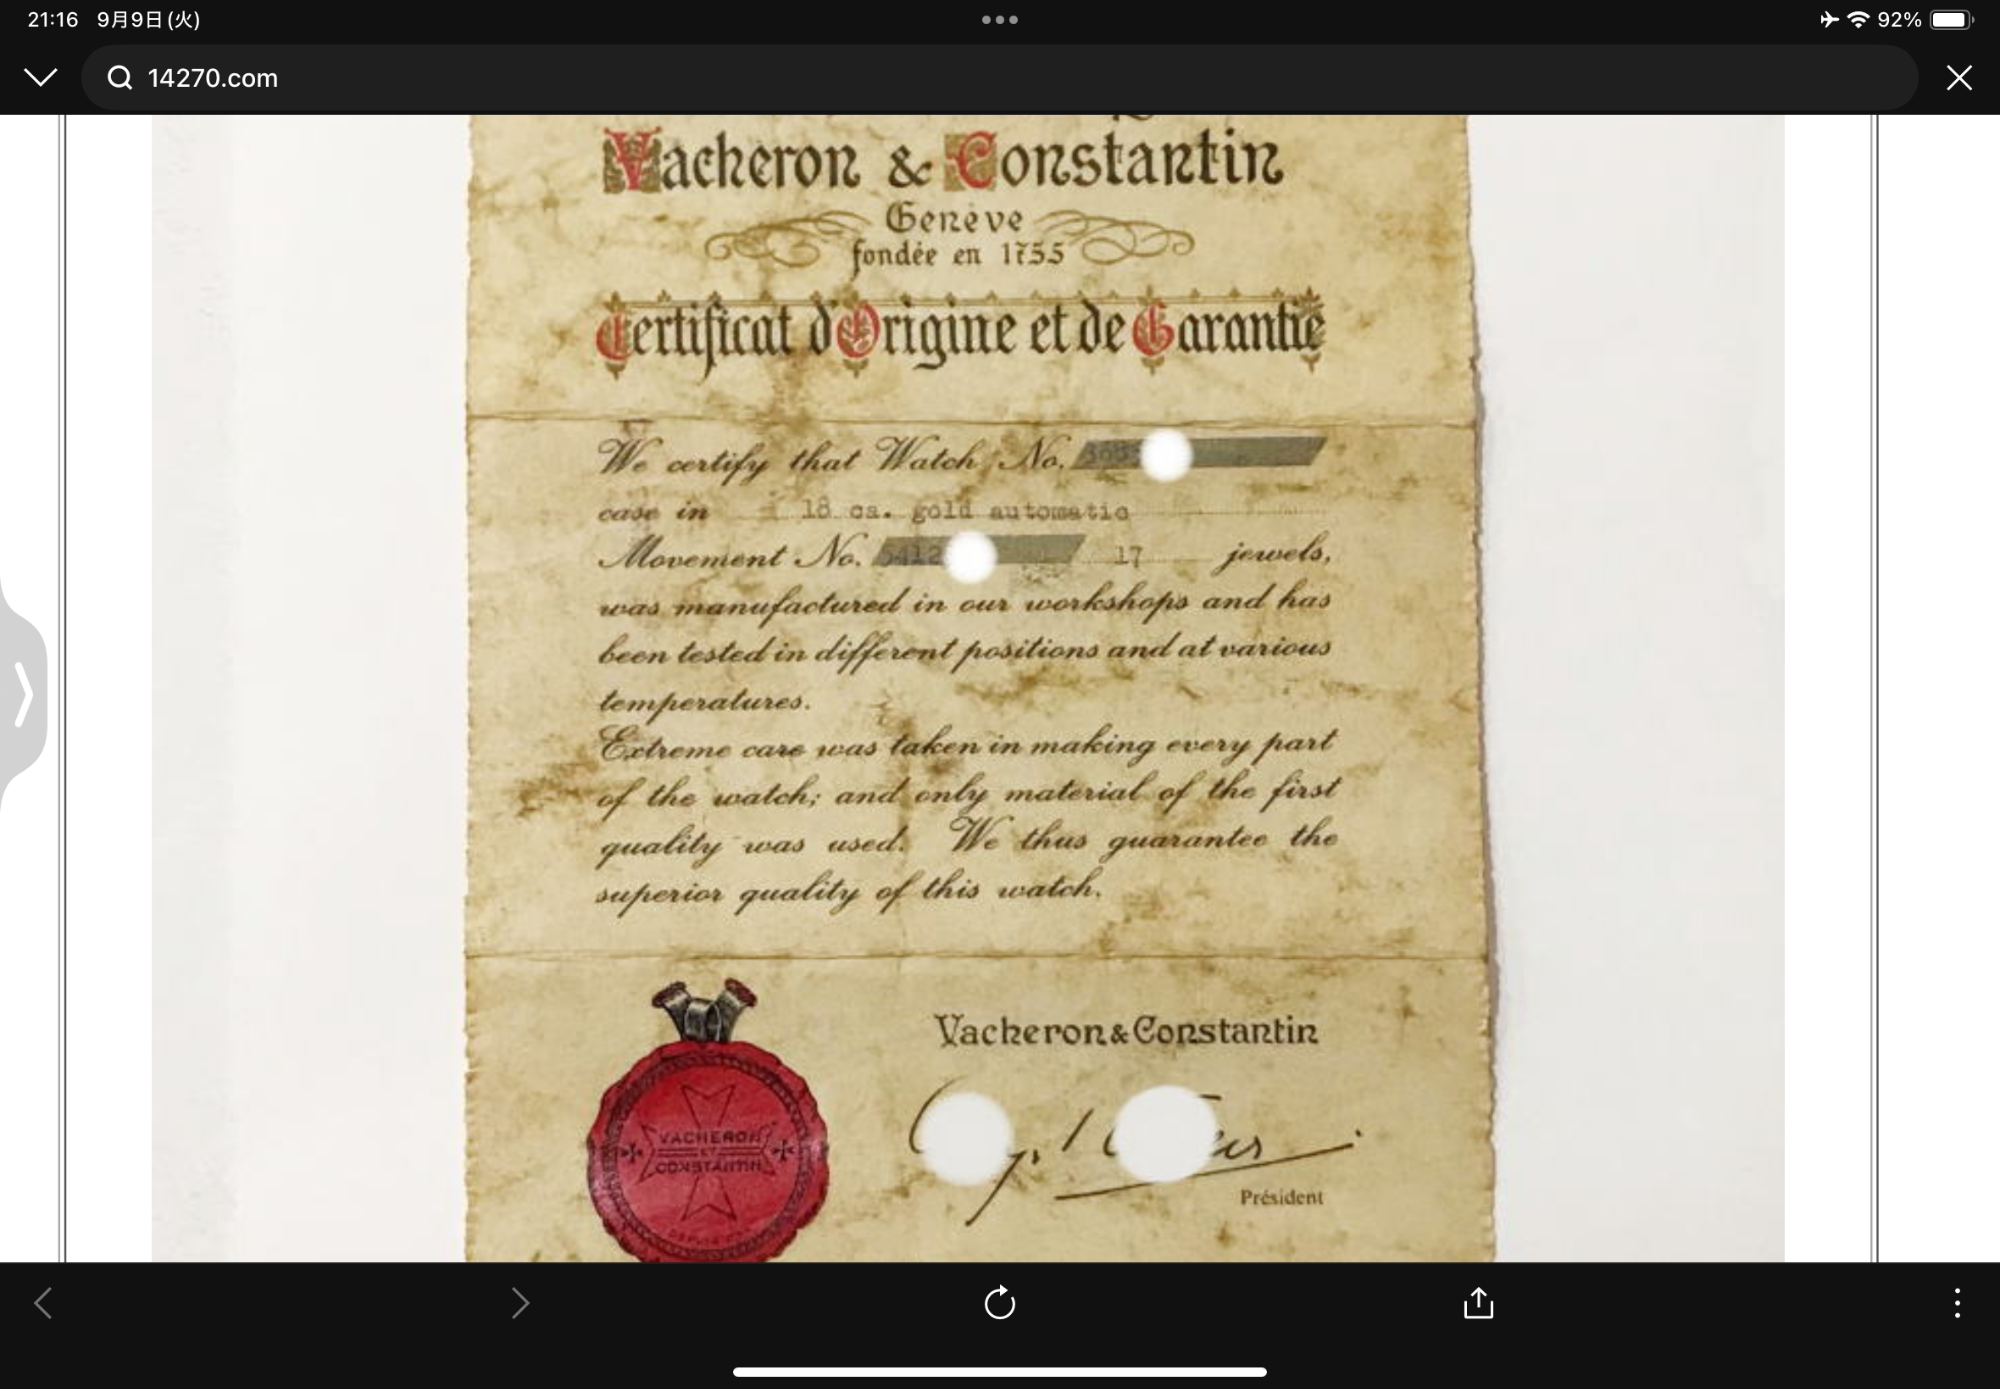 21:16 9月9日(火)
92%
14270.com
Vacheron & Constantin
Genève
fondée en 1755
Certificat d'Origine et de Garantie
We certify that Watch No.
case in 18 ca. gold automatic
Movement No. 5412 17 jewels,
was manufactured in our workshops and has
been tested in different positions and at various
temperatures.
Extreme care was taken in making every part
of the watch; and only material of the first
quality was used. We thus guarantee the
superior quality of this watch.
Vacheron & Constantin
VACHERON
ET
CONSTANTIN
Président